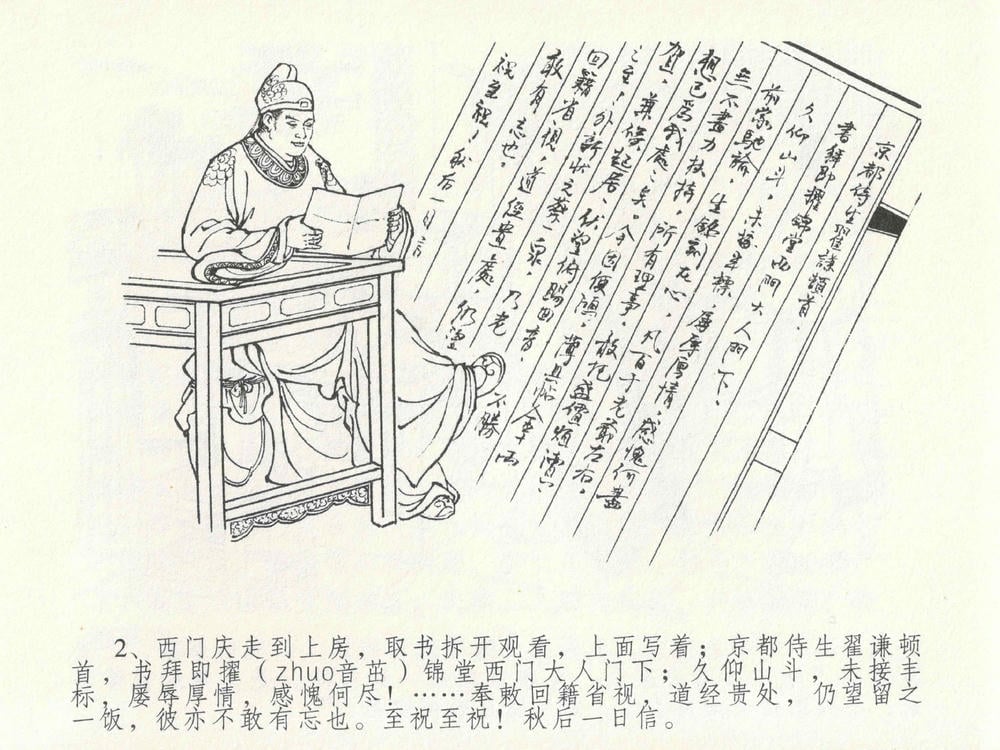 京都侍生翟謙頓首．
書拜即擢錦堂西門大人門下．
久仰山斗，未接丰標，屢辱厚情，感愧何盡
前蒙馳諭，生銘刻在心，凡百于老爺左右，
无不盡力扶持，所有理事，敢托盛價煩瀆，
想已為我處之矣。今因便鴻，薄具帖金
賀，兼候起居、伏望俯賜回音，不勝
之至！外新狀元蔡一泉，乃老
回籍省視，道經貴處，仍望
敢有忘也，
祝至祝！秋后一日言
2、西门庆走到上房，取书拆开观看，上面写着；京都侍生翟谦顿
首，书拜即擢（zhuo音茁）锦堂西门大人门下；久仰山斗，未接丰
标，屡辱厚情，感愧何尽！……奉敕回籍省视，道经贵处，仍望留之
一饭，彼亦不敢有忘也。至祝至祝！秋后一日信。